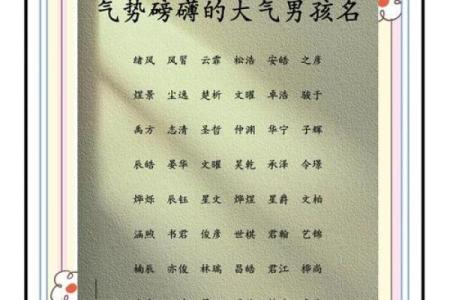 气势磅礴的大气男孩名
绪风 风髯 云霏 松浩 安皓 之彦
煜景 尘逸 楚析 文曜 卓浩 骏于
禹方 志清 圣哲 仲渊 华宁 子辉
辰皓 晏华 文曜 昊乾 承泽 令璟
烨烁 辰钰 星文 烨煜 星爵 文柏
涵煦 书君 俊彦 世棋 君翰 艺锦
楠辰 亦俊 林瑞 昌皓 君江 桦尚